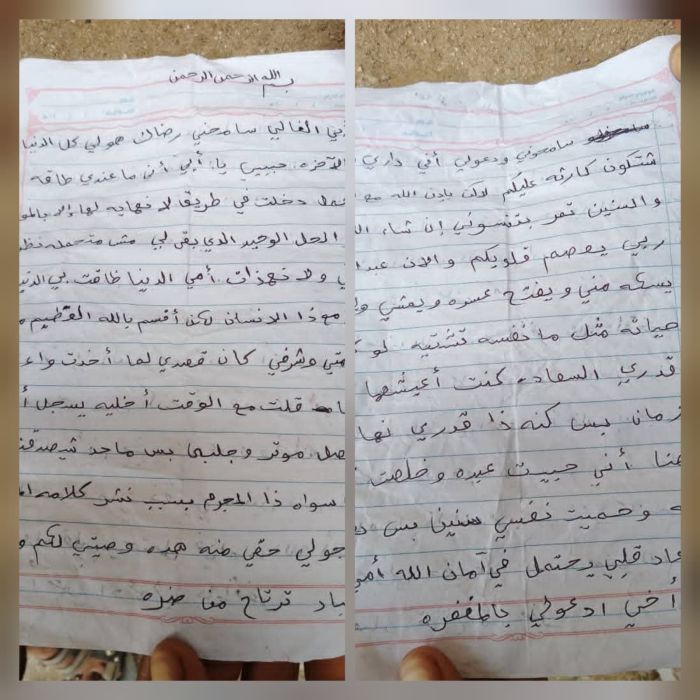 بسم الله الرحمن الرحيم
الغالي سامحني رضاك هو لي كل الدنيا
الآخره حبيب يا أبي أنى ما عندي طاقه
دخلت في طريق لا نهايه لها إلا بالمو
الحل الوحيد الذي بقى لي مش متحمله نظ
ولا نهذات أمي الدينا ظاقت بي الدنيا
مع ذا الانسان لكن أقسم بالله العظيم
وشرفي كان قصدي لما أخذت واع
قلت مع الوقت أخليه يسجل أ
موتر وجلبي بس ماحد شيصدقن
سواه ذا المجرم بسبب نشر كلامه ال
جولي حقي منه هذه وصيتي لكم و
باد ترتاح من ضره
سامحوني ودعولي أني داري
شتكون كارثه عليكم لاكن باذن الله مع
والسنين تمر بتنسوني إن شاء ال
ربي يعصم قلوبكم والان عبدا
يسكه مني ويفتح عسره ويعشي و
حياته مثل ما نفسه تشتيه لو ك
قدري السعاده كنت أعيشها
زمان بس كنه ذا قدري نها
هنا أني حبيت عبده وخلصت
وحميت نفسي سنين بس م
عاد قلبي يحتمل في آمان الله أمي
أخي ادعولي بالمغفره